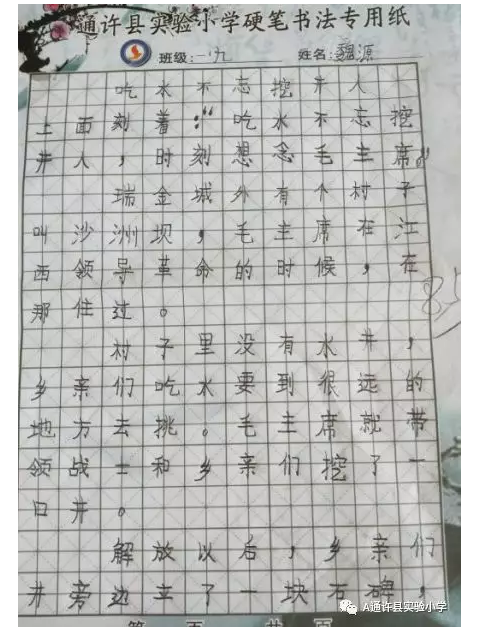 通许县实验小学硬笔书法专用纸
班级: 一九 姓名: 魏源
吃水不忘挖井人
上面刻着:“吃水不忘挖
井人,时刻想念毛主席。”
瑞金城外有个村子
叫沙洲坝,毛主席在江
西领导革命的时候,在
那住过。
村子里没有水井,
乡亲们吃水要到很远的
地方去挑。毛主席就带
领战士和乡亲们挖了一
口井。
解放以后,乡亲们
井旁边立了一块石碑,
85
A通许县实验小学